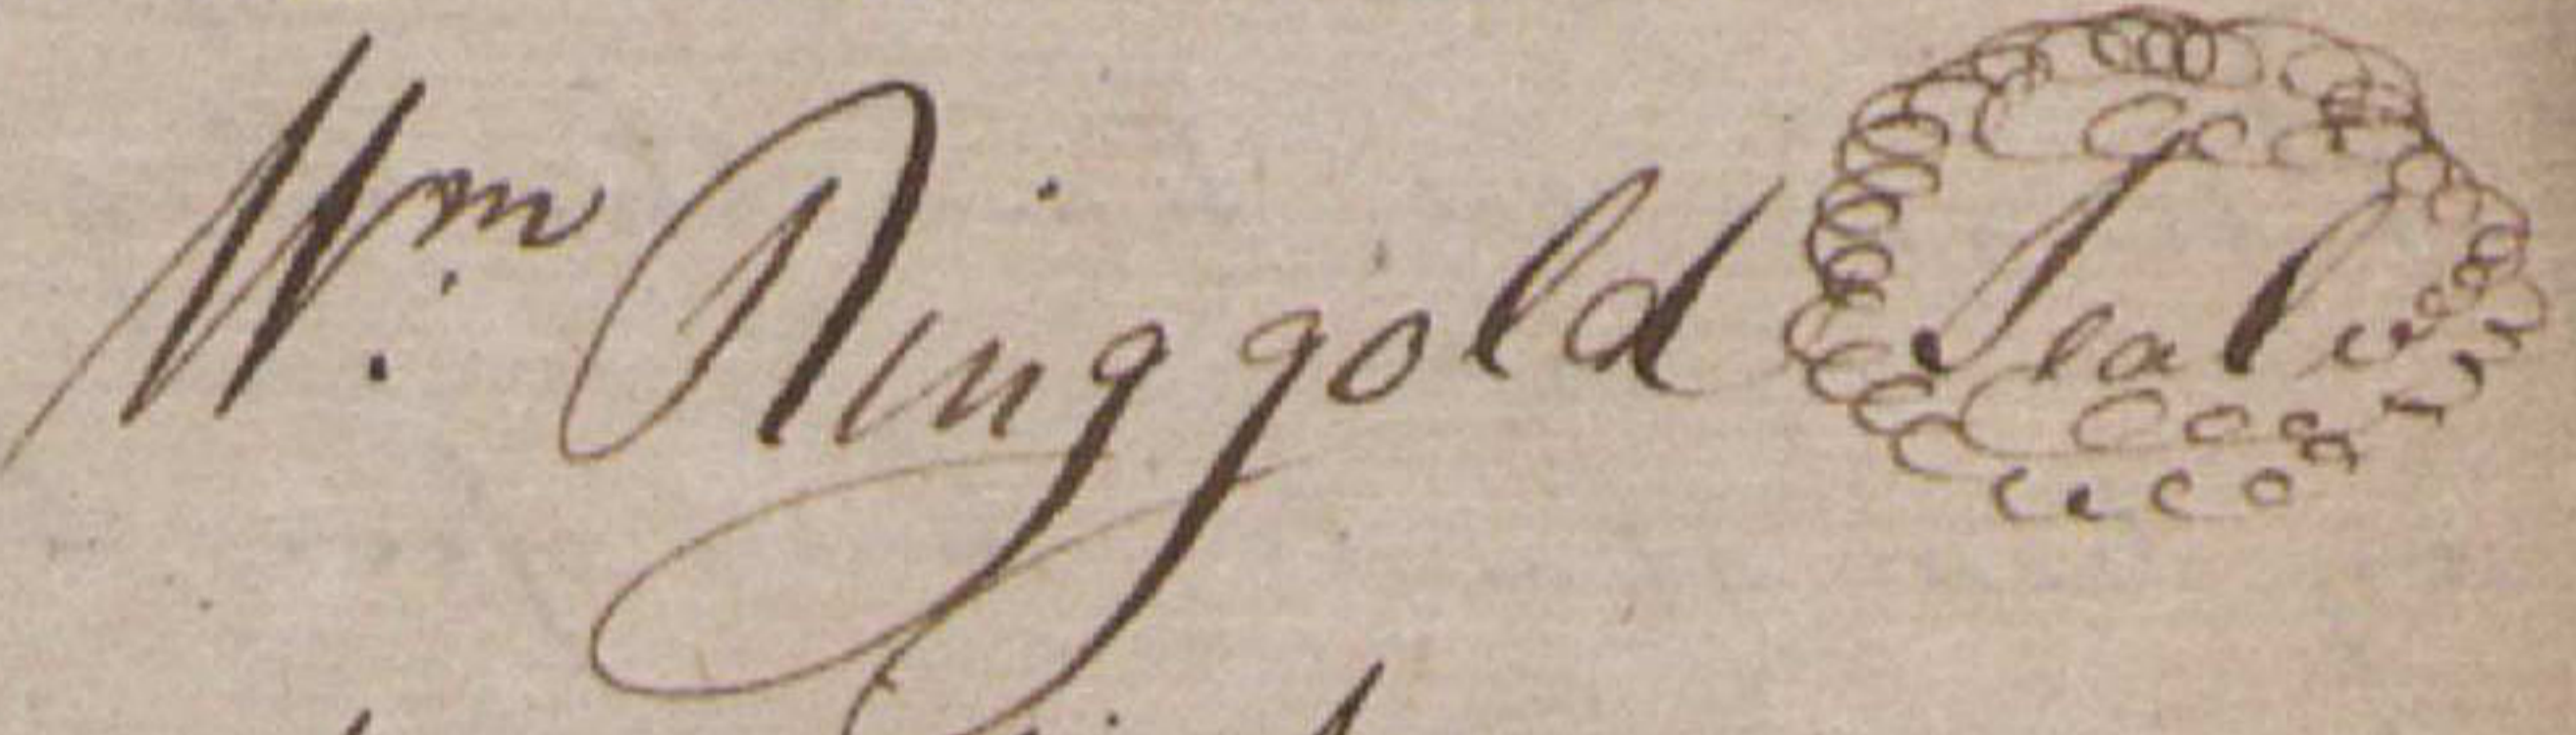 Wm. Ringgold Seal